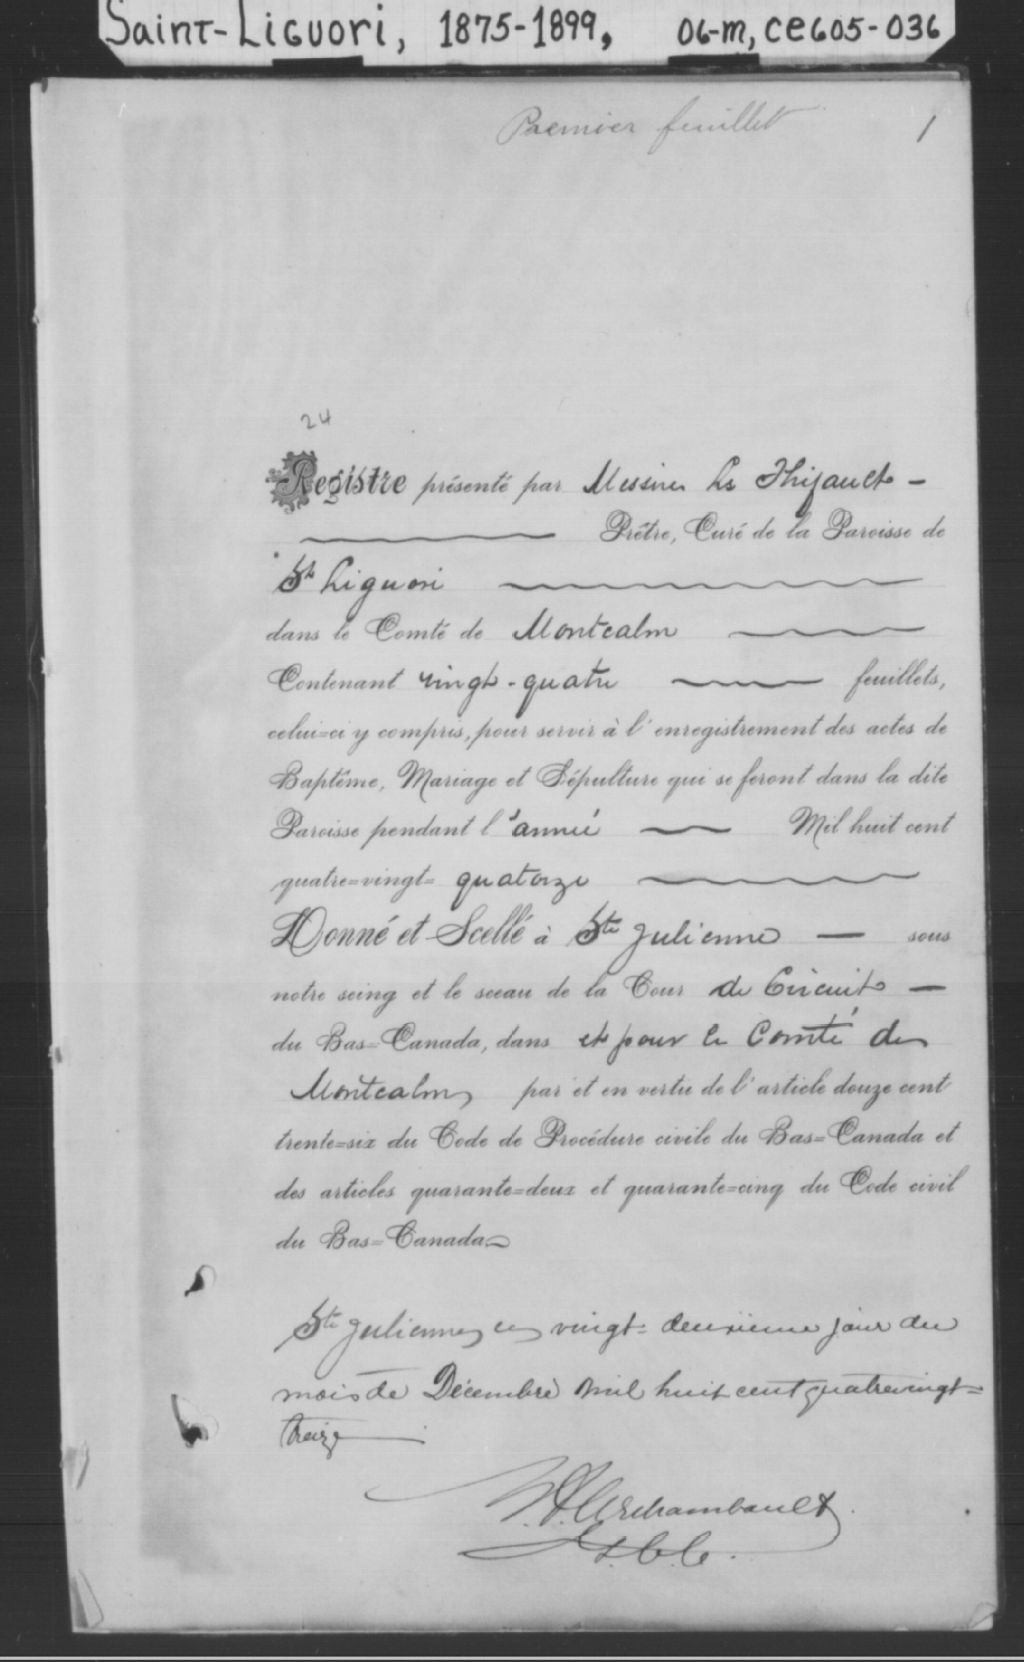 Saint-Liguori, 1875-1899, 06-M, CE605-036
Premier feuillet 1
24
Registre présenté par Messire Ls Thifault —
Prêtre, Curé de la Paroisse de
St Liguori
dans le Comté de Montcalm
Contenant vingt-quatre feuillets,
celui=ci y compris, pour servir à l'enregistrement des actes de
Baptême, Mariage et Sépulture qui se feront dans la dite
Paroisse pendant l'année — Mil huit cent
quatre=vingt= quatorze
Donné et Scellé à Ste Julienne — sous
notre seing et le sceau de la Cour de Circuit —
du Bas=Canada, dans et pour le Comté de
Montcalm par et en vertu de l'article douze cent
trente=six du Code de Procédure civile du Bas=Canada et
des articles quarante=deux et quarante=cinq du Code civil
du Bas=Canada
Ste Julienne ce vingt=deuxième jour du
mois de Décembre mil huit cent quatrevingt=
treize
Archambault
C.C.